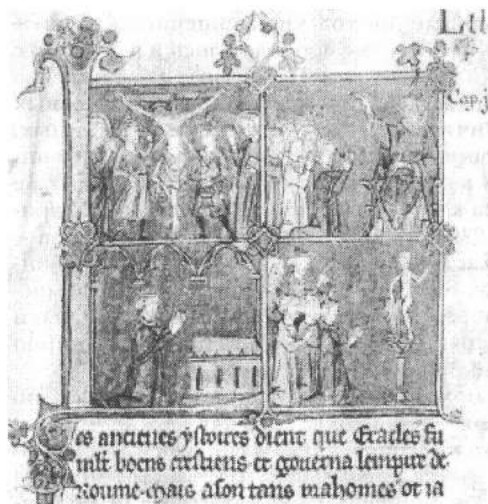 Lib
Cap. j
es ancienes ystoires dient que Eracles fu
mlt boens crestiens et governa lempire de
Roume mais a son tans mahomes ot ia